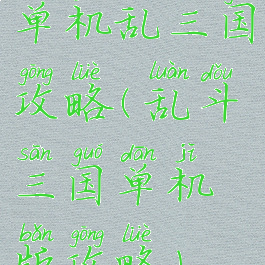 单机乱三国
gōng lüè luàn dǒu
攻略(乱斗
sān guó dān jī
三国单机
bǎn gōng lüè
版攻略)